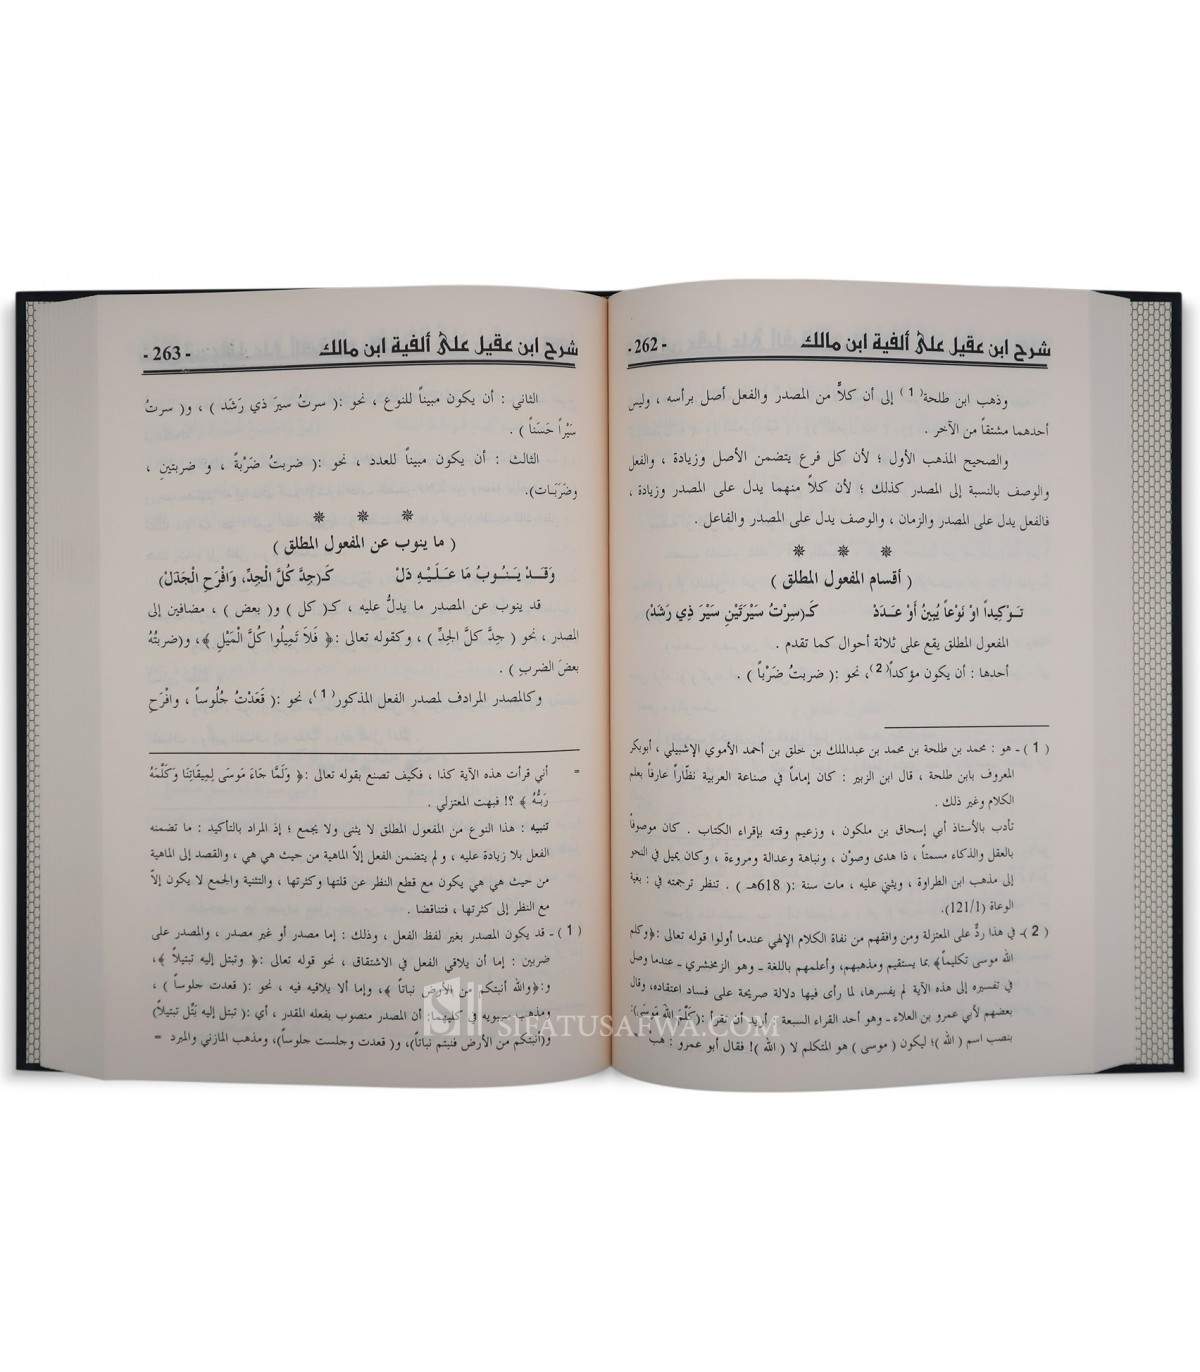 شرح ابن عقيل على ألفية ابن مالك - 262 -
وذهب ابن طلحة(1) إلى أن كلاًّ من المصدر والفعل أصل برأسه ، وليس
أحدهما مشتقاً من الآخر .
والصحيح المذهب الأول ؛ لأن كل فرع يتضمن الأصل وزيادة ، والفعل
والوصف بالنسبة إلى المصدر كذلك ؛ لأن كلاً منهما يدل على المصدر وزيادة ،
فالفعل يدل على المصدر والزمان ، والوصف يدل على المصدر والفاعل .
( أقسام المفعول المطلق )
تَـوْكِيداً اوْ نَوْعاً يُبِينُ أَوْ عَـدَدْ كَـ(سِرْتُ سَيْرَتَيْنِ سَيْرَ ذِي رَشَدْ)
المفعول المطلق يقع على ثلاثة أحوال كما تقدم .
أحدها : أن يكون مؤكداً(2)، نحو :( ضربتُ ضَرْباً ) .
(1) ـ هو : محمد بن طلحة بن محمد بن عبدالملك بن خلق بن أحمد الأموي الإشبيلي ، أبوبكر
المعروف بابن طلحة ، قال ابن الزبير : كان إماماً في صناعة العربية نظّاراً عارفاً بعلم
الكلام وغير ذلك .
تأدب بالأستاذ أبي إسحاق بن ملكون ، وزعيم وقته بإقراء الكتاب . كان موصوفاً
بالعقل والذكاء مسمتاً ، ذا هدى وصوْن ، ونباهة وعدالة ومروءة ، وكان يميل في النحو
إلى مذهب ابن الطراوة ، ويثني عليه ، مات سنة :( 618هـ ) . تنظر ترجمته في : بغية
الوعاة (121/1).
(2)ـ في هذا ردٌّ على المعتزلة ومن وافقهم من نفاة الكلام الإلهي عندما أولوا قوله تعالى :﴿وكلم
الله موسى تكليماً﴾ بما يستقيم ومذهبهم، وأعلمهم باللغة ـ وهو الزمخشري ـ عندما وصل
في تفسيره إلى هذه الآية لم يفسرها، لما رأى فيها دلالة صريحة على فساد اعتقاده، وقال
بعضهم لأبي عمرو بن العلاء ـ وهو أحد القراء السبعة ـ أريد أن نقرأ :(كَلَّمَ اللهَ مُوسَى)؛
بنصب اسم ( الله )؛ ليكون ( موسى ) هو المتكلم لا ( الله )! فقال أبو عمرو : هب
شرح ابن عقيل على ألفية ابن مالك - 263 -
الثاني : أن يكون مبيناً للنوع ، نحو :( سرتُ سيرَ ذي رَشَد ) ، و( سرتُ
سَيْراً حَسَناً ) .
الثالث : أن يكون مبيناً للعدد ، نحو :( ضربتُ ضَرْبةً ، و ضربتينِ ،
وضَرَبَـات).
( ما ينوب عن المفعول المطلق )
وَقَـدْ يَـنُـوبُ مَا عَـلَـيْـهِ دَلْ كَـ(جِدَّ كُلَّ الْجِدِّ، وَافْرَحِ الْجَذَلْ)
قد ينوب عن المصدر ما يدلُّ عليه ، كـ( كل ) و( بعض ) ، مضافين إلى
المصدر ، نحو ( جِدَّ كلَّ الجِدِّ ) ، وكقوله تعالى :﴿ فَلاَ تَمِيلُوا كُلَّ الْمَيْلِ ﴾، و(ضربتُهُ
بعضَ الضربِ ) .
وكالمصدر المرادف لمصدر الفعل المذكور(1)، نحو :( قَعَدْتُ جُلُوساً ، وافْرَحِ
= أني قرأت هذه الآية كذا ، فكيف تصنع بقوله تعالى :﴿ وَلَمَّا جَاءَ مُوسَى لِمِيقَاتِنَا وَكَلَّمَهُ
رَبُّهُ ﴾ ؟! فبهت المعتزلي .
تنبيه : هذا النوع من المفعول المطلق لا يثنى ولا يجمع ؛ إذ المراد بالتأكيد : ما تضمنه
الفعل بلا زيادة عليه ، ولم يتضمن الفعل إلاّ الماهية من حيث هي هي ، والقصد إلى الماهية
من حيث هي هي يكون مع قطع النظر عن قلتها وكثرتها ، والتثنية والجمع لا يكون إلاّ
مع النظر إلى كثرتها ، فتناقضا .
(1)ـ قد يكون المصدر بغير لفظ الفعل ، وذلك : إما مصدر أو غير مصدر ، والمصدر على
ضربين : إما أن يلاقي الفعل في الاشتقاق ، نحو قوله تعالى :﴿ وتبتل إليه تبتيلاً ﴾،
و:﴿والله أنبتكم من الأرض نباتاً ﴾، وإما ألا يلاقيه فيه ، نحو :( قعدت جلوساً ) ،
ومذهب سيبويه في كليهما: أن المصدر منصوب بفعله المقدر ، أي :( تبتل إليه بَتِّل تبتيلاً)
و(أنبتكم من الأرض فنبتم نباتاً)، و( قعدت وجلست جلوساً)، ومذهب المازني والمبرد =
SIFATUSAFWA.COM